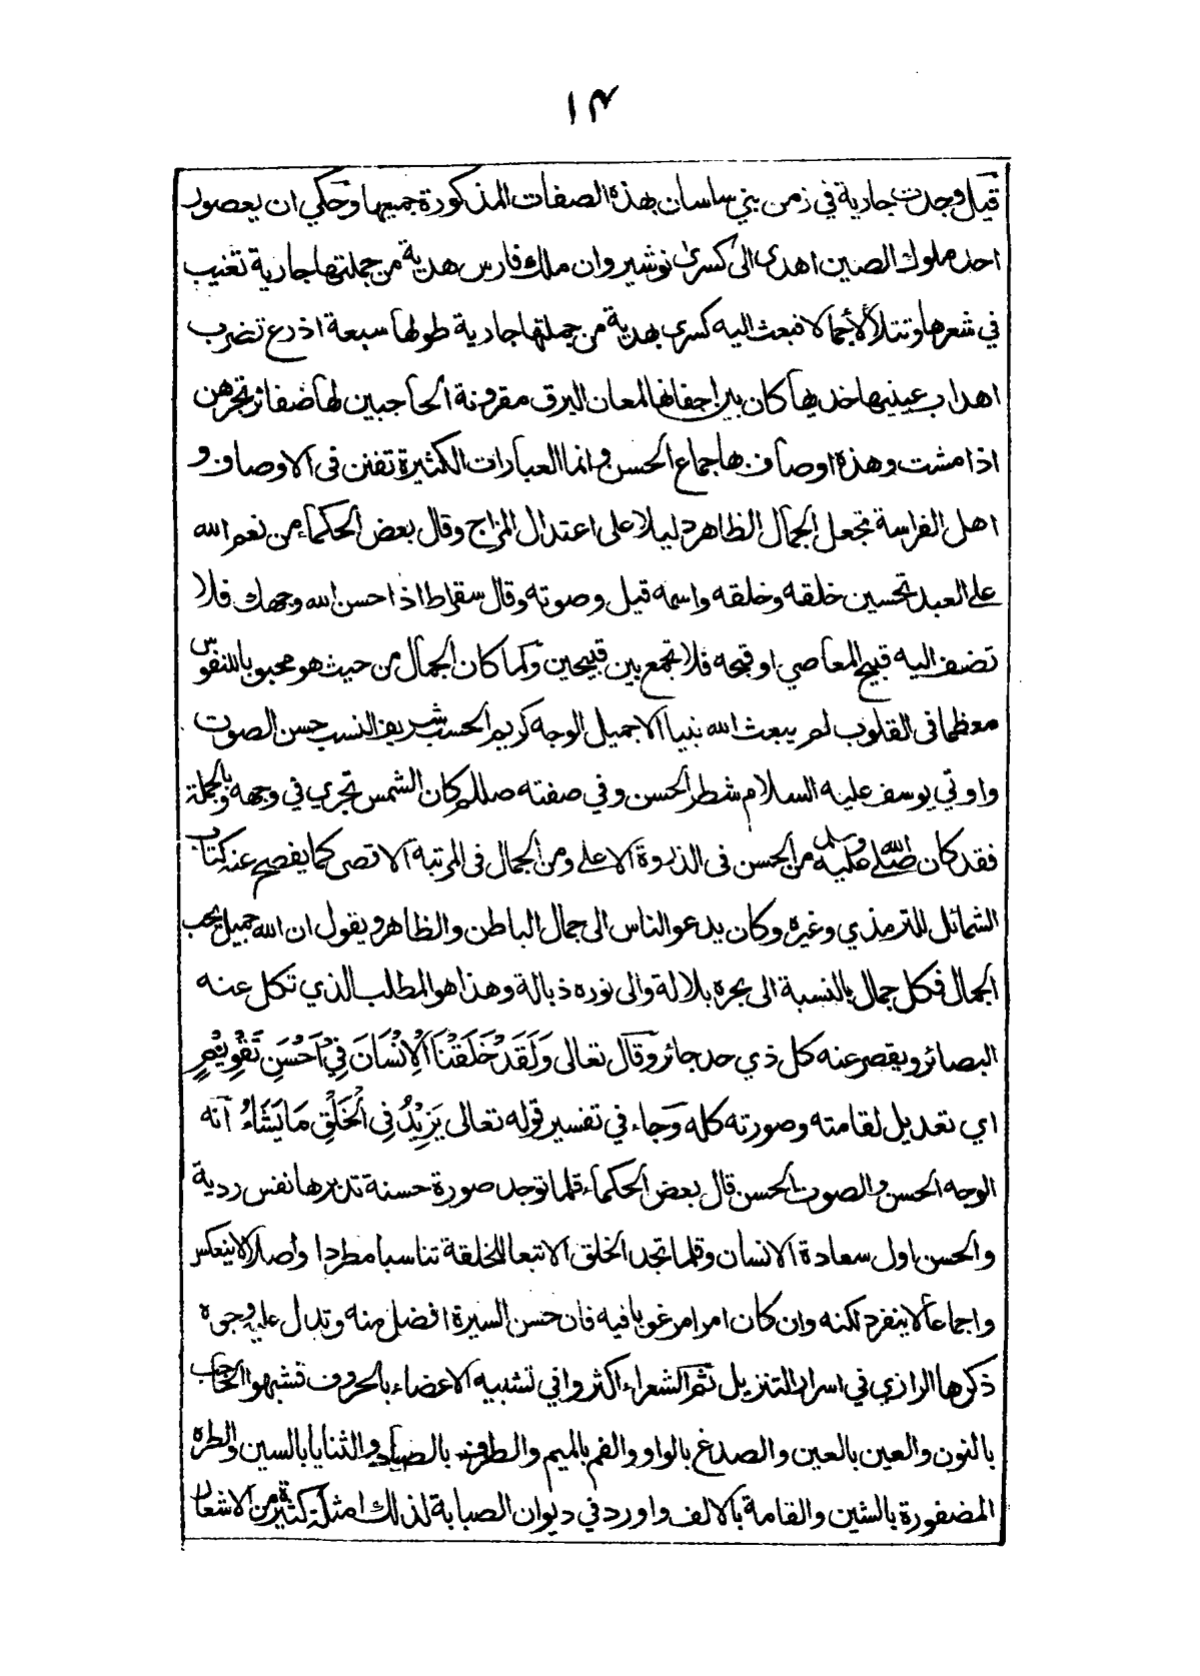 ١٣
قيل وجدت جارية في زمن بني ساسان بهذه الصفات المذكورة جميعها وحكي ان يعصور
احد ملوك الصين اهدى الى كسرى نوشيروان ملك فارس هدية من جملتها جارية تغيب
في شعرها وتتلألأ جمالا فبعث اليه كسرى بهدية من جملتها جارية طولها سبعة اذرع تضرب
اهداب عينيها خديها كان بين اجفانها لمعان البرق مقرونة الحاجبين لها ضفائر تجرهن
اذا مشت وهذه اوصاف ها جماع الحسن وانما العبارات الكثيرة تفنن فى الاوصاف و
اهل الفراسة تجعل الجمال الظاهر دليلا على اعتدال المزاج وقال بعض الحكماء من نعم الله
على العبد تحسين خلقه وخلقه واسمه قيل وصوته وقال سقراط اذا حسن الله وجهك فلا
تضف اليه قبيح المعاصي او قبحه فلا تجمع بين قبيحين وكما كان الجمال من حيث هو محبوبا للنفوس
معظما فى القلوب لم يبعث الله نبيا الا جميل الوجه كريم الحسب شريف النسب حسن الصوت
واوتي يوسف عليه السلام شطر الحسن وفي صفته صللم كان الشمس تجري في وجهه وبالجملة
فقد كان صلى الله عليه وسلم من الحسن فى الذروة الاعلى ومن الجمال فى المرتبة الاقصى كما يفصح عنه كتاب
الشمائل للترمذي وغيره وكان يدعو الناس الى جمال الباطن والظاهر ويقول ان الله جميل يحب
الجمال فكل جمال بالنسبة الى بحره بلالة والى نوره ذبالة وهذا هو المطلب الذي تكل عنه
البصائر ويقصر عنه كل ذي حد جائر وقال تعالى وَلَقَدْ خَلَقْنَا الْاِنْسَانَ فِيْ اَحْسَنِ تَقْوِيْمٍ
اي تعديل لقامته وصورته كله وجاء في تفسير قوله تعالى يَزِيْدُ فِى الْخَلْقِ مَا يَشَاءُ انه
الوجه الحسن والصوت الحسن قال بعض الحكماء قلما توجد صورة حسنة تدبرها نفس ردية
والحسن اول سعادة الانسان وقلما تجد الخلق الا تبعا للخلقة تناسبا مطردا واصلا لا ينعكس
واجماعا لا ينفرد لكنه وان كان امرا مرغوبا فيه فان حسن السيرة افضل منه وتدل عليه وجوه
ذكرها الرازي في اسرار التنزيل ثم الشعراء اكثروا في تشبيه الاعضاء بالحروف فشبهوا الحاجب
بالنون والعين بالعين والصدغ بالواو والفم بالميم والطرف بالصاد والثنايا بالسين والطره
المضفورة بالشين والقامة بالالف واورد في ديوان الصبابة لذلك امثلة كثيرة من الاشعار